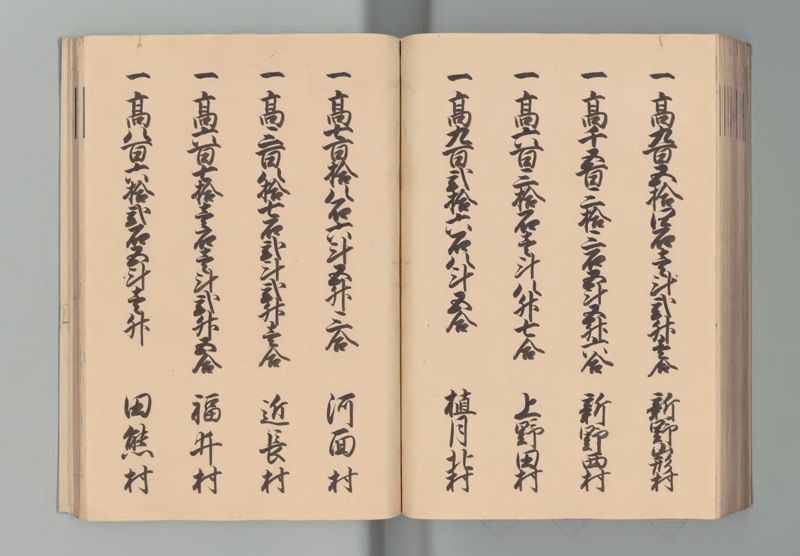 一 高九百五拾四石壱斗弐升壱合 新野山形村
一 高千五百三拾三石五斗五升六合 新野西村
一 高六百三拾石壱斗八升七合 上野田村
一 高九百弐拾六石八斗五合 植月北村
一 高七百拾八石六斗五升三合 河面村
一 高三百八拾七石弐斗弐升壱合 近長村
一 高六百七拾壱石壱斗弐升五合 福井村
一 高八百六拾弐石五斗壱升 田熊村